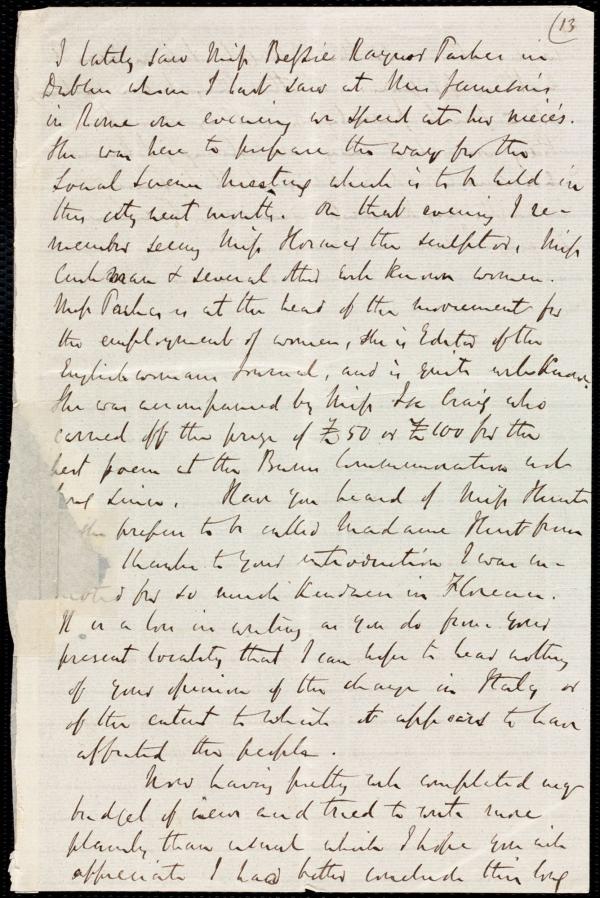 (13
I lately saw Miss Bessie Rayner Parkes in
Dublin whom I last saw at Mrs Jameson's
in Rome one evening we spent at her niece's.
She was here to prepare the way for the
Social Science Meeting which is to be held in
this city next month. On that evening I re-
member seeing Miss Hosmer the sculptor, Miss
Cushman & several other well known women.
Miss Parkes is at the head of the movement for
the employment of women, she is Editor of the
Englishwomans Journal, and is quite well known.
She was accompanied by Miss Isa Craig who
carried off the prize of £50 or £100 for the
best poem at the Burns Commemoration not
long since. Have you heard of Miss Hunt
she prefers to be called Madame Hunt from
thanks to your introduction I was in-
debted for so much kindness in Florence.
It is a loss in writing as you do from your
present locality that I can hope to hear nothing
of your opinion of the change in Italy or
of the extent to which it appears to have
affected the people.
Now having pretty well completed my
budget of news and tried to write more
plainly than usual which I hope you will
appreciate I had better conclude this long